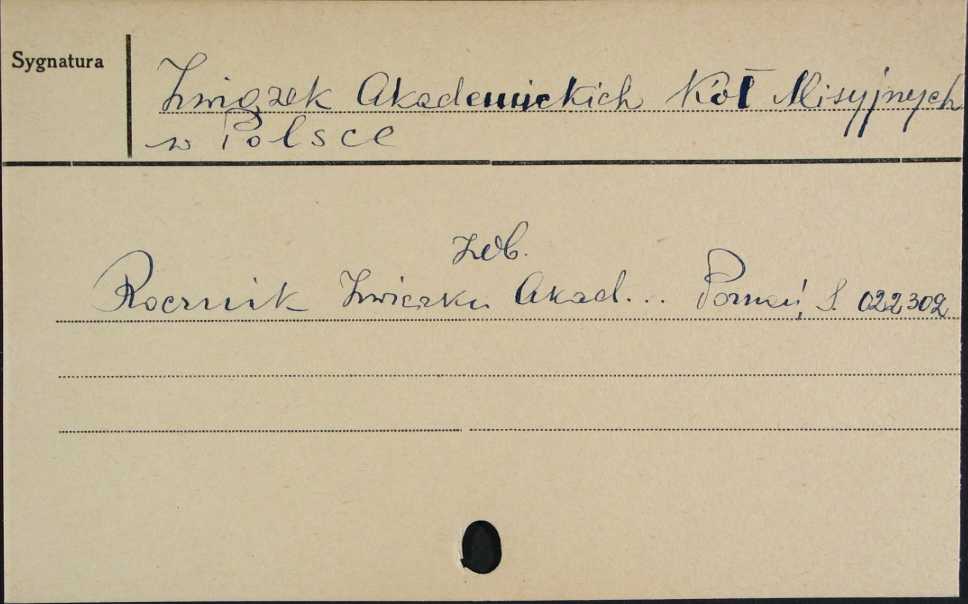 Sygnatura
Związek Akademickich Kół Misyjnych
w Polsce
zob.
Rocznik Związku Akad... Poznań, S. 022302